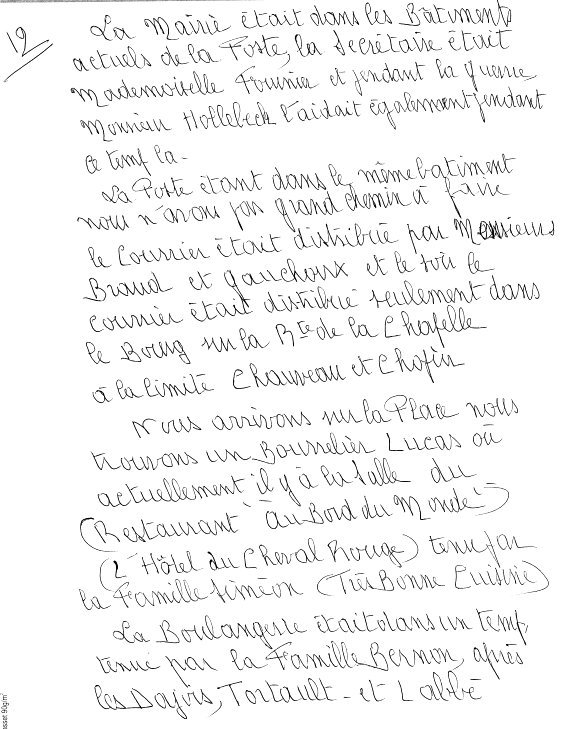 12
La Mairie était dans les Bâtiments
actuels de la Poste, la Secrétaire était
Mademoiselle Fournier et pendant la guerre
Monsieur Hollebeck l'aidait également pendant
ce temp la.
La Poste étant dans le même batiment
nous n'avons pas grand chemin à faire
le Courrier était distribué par Messieurs
Braud et Gauchoux et le soir le
courrier était distribué seulement dans
le Bourg sur la Rte de la Chapelle
à la limite Chauveau et Chopin
Nous arrivons sur la Place nous
trouvons un Bourrelier Lucas où
actuellement il y à la Salle du
(Restaurant "Au Bord du Monde")
(L'Hôtel du Cheval Rouge) tenu par
la Famille Siméon (Très Bonne Cuisine)
La Boulangerie était dans un temp,
tenue par la Famille Bernon, après
les Tortault - et Labbé
90g/m²